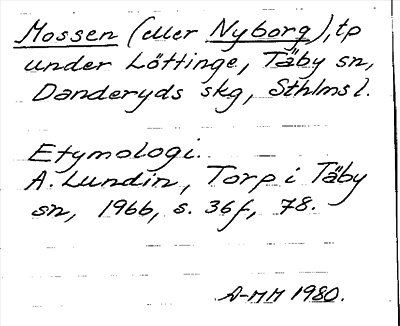 Mossen (eller Nyborg), tp
under Löttinge, Täby sn,
Danderyds skg, Sthlms l.
Etymologi.
A. Lundin, Torp i Täby
sn, 1966, s. 36f, 78.
A-MM 1980.